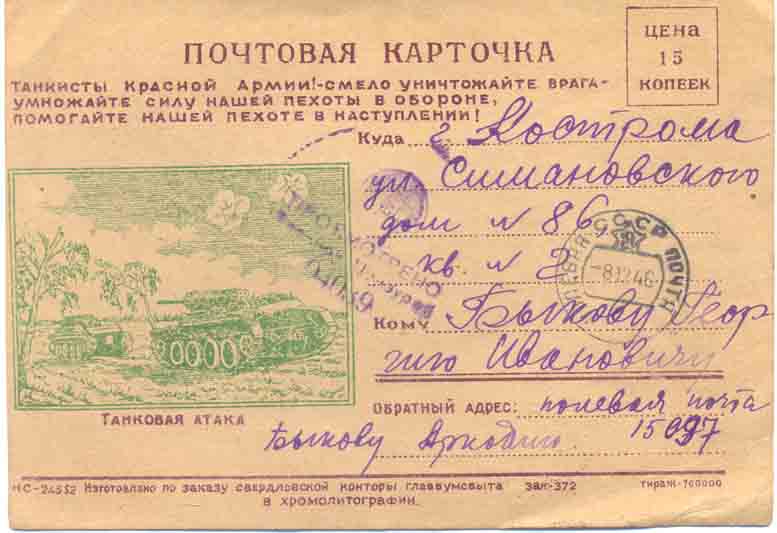 ПОЧТОВАЯ КАРТОЧКА
ЦЕНА
15
КОПЕЕК
ТАНКИСТЫ КРАСНОЙ АРМИИ!-СМЕЛО УНИЧТОЖАЙТЕ ВРАГА-
УМНОЖАЙТЕ СИЛУ НАШЕЙ ПЕХОТЫ В ОБОРОНЕ,
ПОМОГАЙТЕ НАШЕЙ ПЕХОТЕ В НАСТУПЛЕНИИ!
Куда г. Кострома
ул. Симановского
дом N 86,
кв. N 2
ПРОСМОТРЕНО
СССР ПОЧТА
-8.12.46
Кому Быкову Геор
гию Ивановичу
ТАНКОВАЯ АТАКА
ОБРАТНЫЙ АДРЕС: полевая почта
Быкову Аркадию 15097
НС-24552 Изготовлено по заказу свердловской конторы главбумсбыта Зак-372 тираж-700000
в хромолитографии.